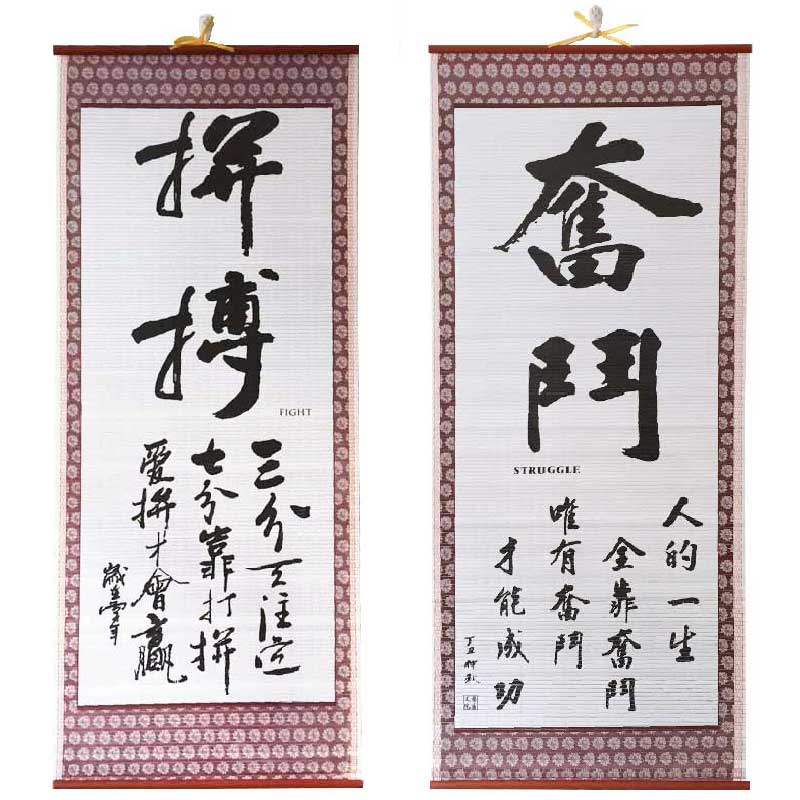 拼搏
FIGHT
三分天注定
七分靠打拼
愛拼才會贏
奮鬥
STRUGGLE
人的一生
全靠奮鬥
唯有奮鬥
才能成功
丁丑